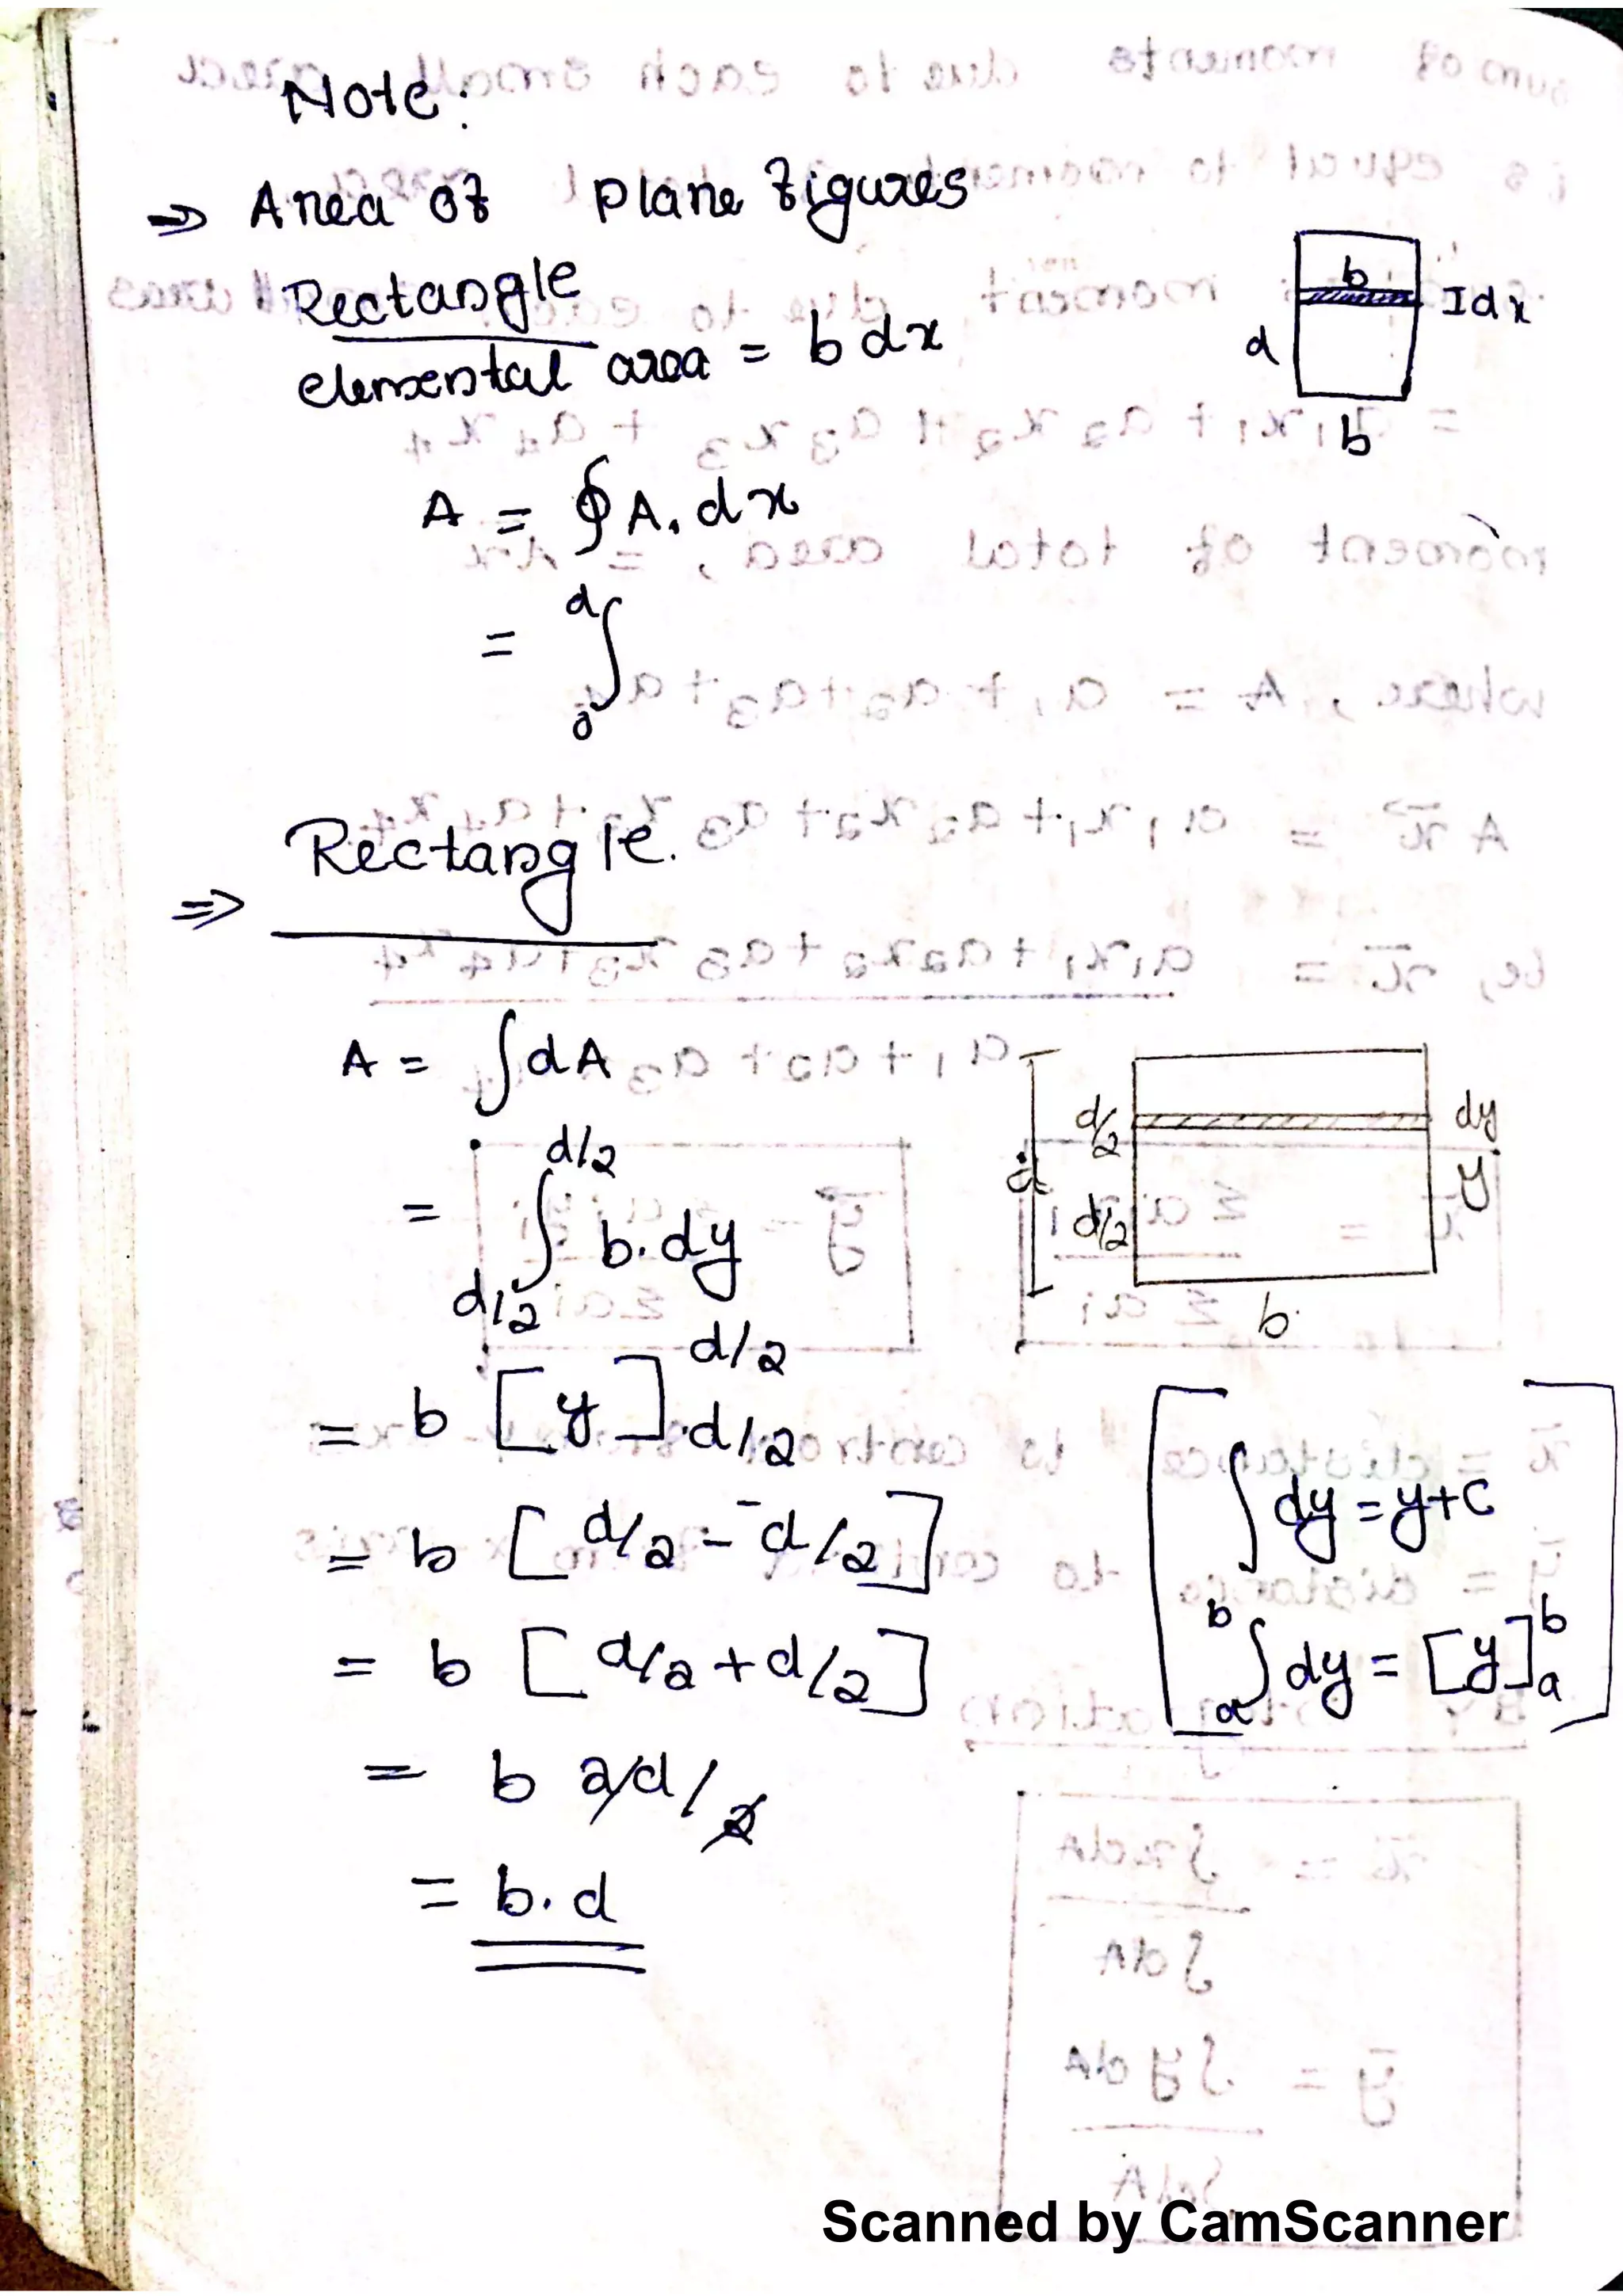 Note:
⇒ Area of plane figures
Rectangle
elemental area = b dx
b
I dx
d
b
A = ∮ A. dx
= ∫₀ᵈ
⇒ Rectangle.
A = ∫ dA
= ∫ b. dy
d/2
d/2
d/2
dy
d
d/2
y
b.
= b [y] d/2
d/2
= b [d/2 - -d/2]
= b [d/2 + d/2]
= b 2d/2
= b. d
∫ dy = y + c
ₐ∫ᵇ dy = [y]ₐᵇ
Scanned by CamScanner